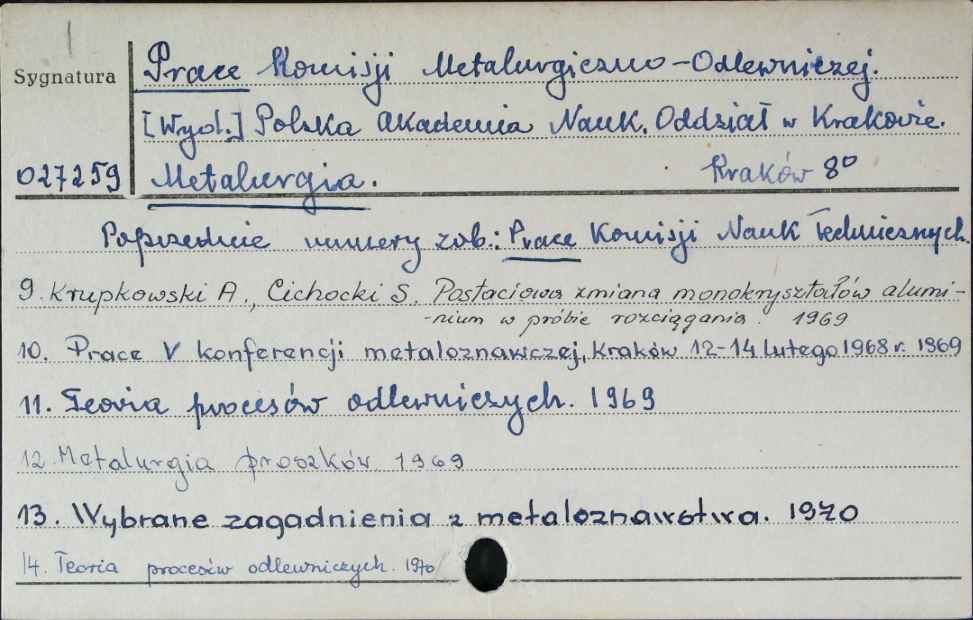 1
Sygnatura
Prace Komisji Metalurgiczno-Odlewniczej.
[Wyd.] Polska Akademia Nauk. Oddział w Krakowie.
027259
Metalurgia. Kraków 8º
Poprzednie numery zob.: Prace Komisji Nauk Technicznych.
9. Krupkowski A., Cichocki S. Postaciowa zmiana monokryształów alumi-
-nium w próbie rozciągania. 1969
10. Prace V konferencji metaloznawczej, Kraków 12-14 lutego 1968 r. 1969
11. Teoria procesów odlewniczych. 1969
12. Metalurgia proszków 1969
13. Wybrane zagadnienia z metaloznawstwa. 1970
14. Teoria procesów odlewniczych. 1970